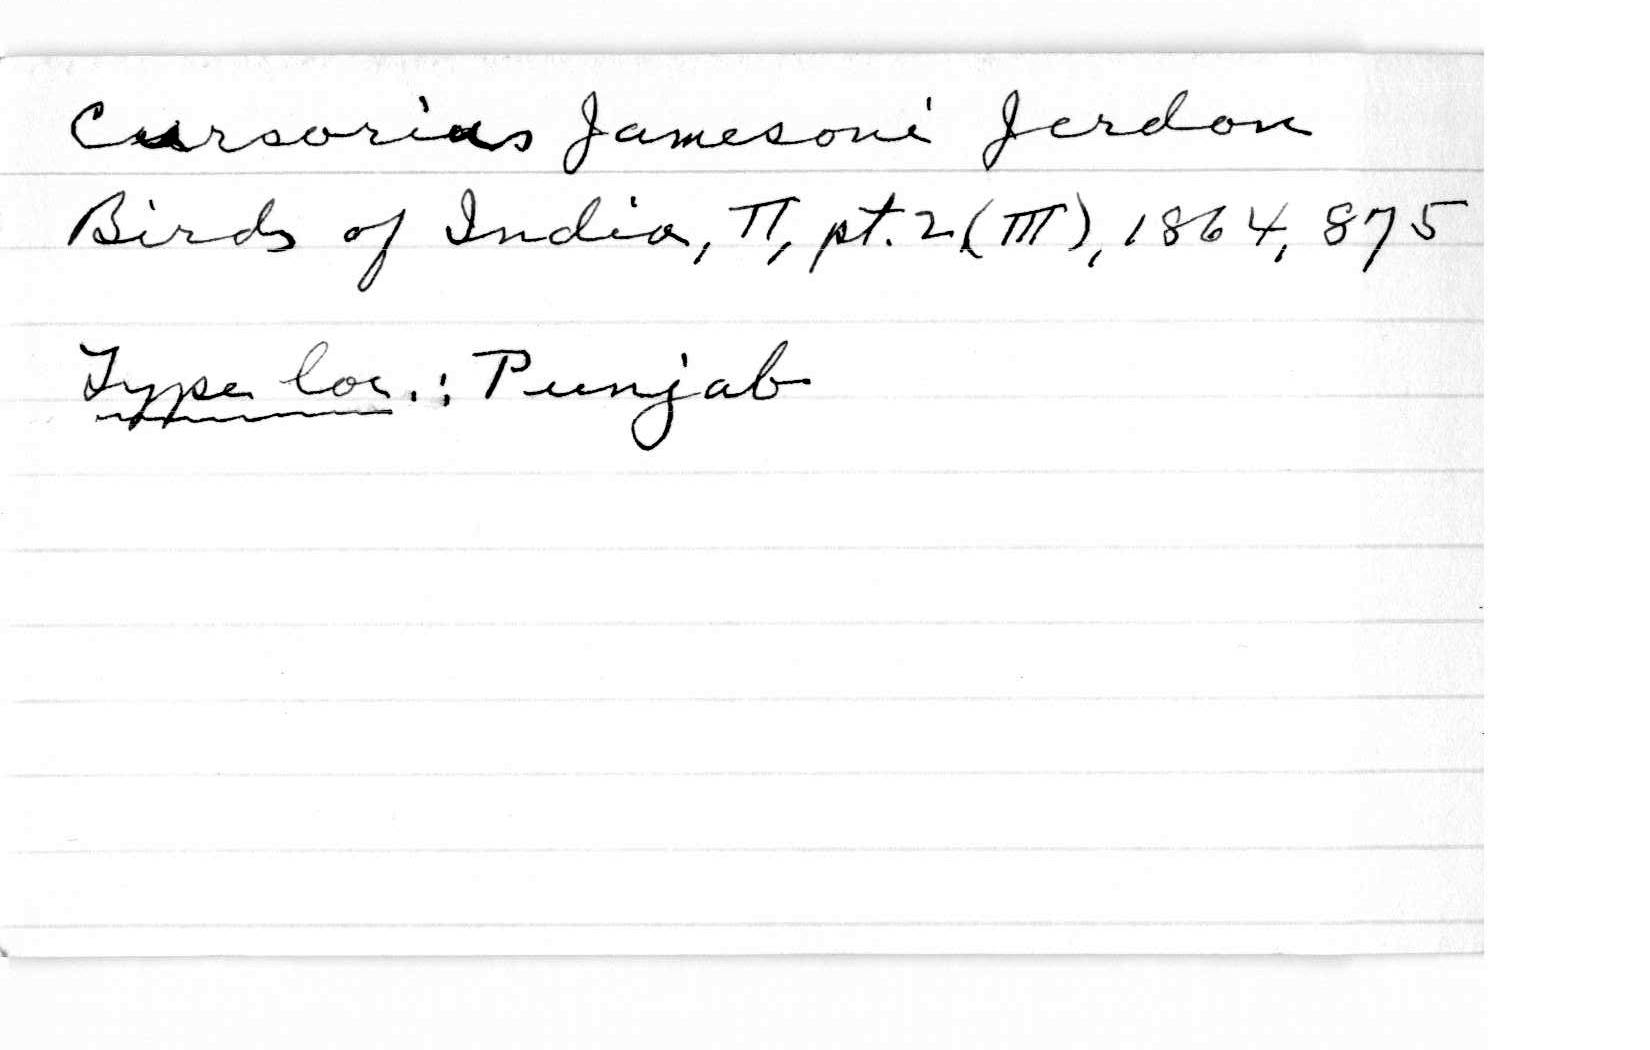 Cursorius Jamesoni Jerdon
Birds of India, II, pt. 2 (III), 1864, 875
Type loc.: Punjab